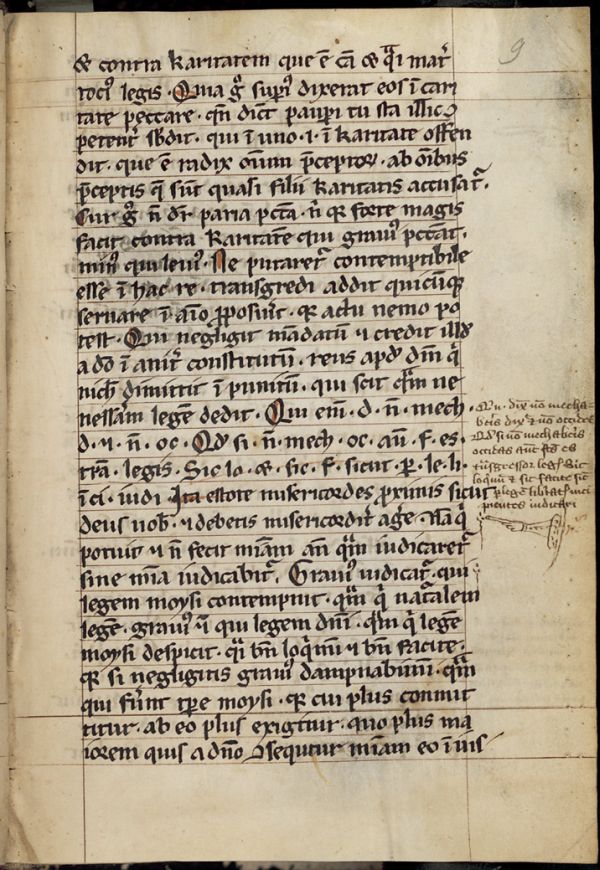 9
& contra karitatem que ē cā & q̄i mat̄
tociꝰ legis. Quia gͦ supiꝰ dixerat eos ī cari
tate peccare. qn̄ dict̄ paupi tu sta illic
petent̄ sb̄dit. qui ī uno .i. ī karitate offen
dit. que ē radix om̄ium p̄ceptoꝝ. ab om̄ibus
p̄ceptis q̄ sūt quasi filii karitatis accusat̄.
Cur gͦ n̄ dr̄ paria pctā. n̄ qꝛ forte magis
facit contra karitatē qui grauiꝰ pccāt.
minꝰ qui leuiꝰ. Ne putaret̄ contemptibile
esse ī hac re. transgredi addit quicūqꝫ
seruare ī aīo ꝓposueīt. qꝛ actu nemo po
test. Qui negligit mādatū ⁊ credit illđ
a dō ī constitutū. reus apđ dm̄ q̄
nichͥ dimittit ī punitū. qui scit ne
nessam̄ legē dedit. Qui em̄. d. n̄. mech.
d. ⁊. n̄. oc. Qđ si. n̄. mech. oc. aū. f. es.
trā. legis. Sic lo. &. sic. f. sicut. p̱. le. li.
īci. iudi. Ita estote misericordes proximis sicut
deus uob̄. ⁊ debetis misericordit̄ age̅. Nā q̄
potuit ⁊ n̄ fecit miām an̄ qͣm iudicaret̄
sine mīa iudicabit̄. Grauiꝰ iudicat̄. qui
legem moysi contempnit. qͣm q̄ nat̄alem
legē. grauiꝰ ⁊ qui legem dn̄i. qͣm q̄ legē
moysi despicit. bn̄ loqͥmīi ⁊ bn̄ facite.
qꝛ si negligitis grauiꝰ dampnabimīi. qͣm
qui fūnt tp̄e moysi. qꝛ cui plus commit
titur. ab eo plus exigitur. quo plus ma
iorem quis a dn̄o ꝯsequtur miām eo ī iuis
dix̄ nō mecha
beris dix̄ ⁊ nō occides
Qđ si nō mechab̄is
occidas aut̄ fcs es
tn̄sgressor legͥ. Sic
loqͥmī ⁊ sic facite sic
p̱ legē lib̄tatͥ inci
pientes iudicari